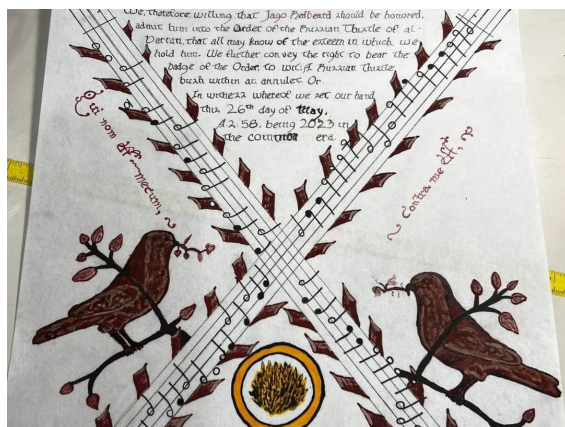 We, therefore willing that Jago Redbeard should be honored,
admit him into the Order of the Russian Thistle of al-
Barran, that all may know of the esteem in which we
hold him. We further convey the right to bear the
badge of the Order to wit: A Russian Thistle
bush within an annulet Or.
In witness whereof we set our hand
this 26th day of May,
A.S. 58, being 2023 in
the common era
Qui nom est mecum,
Contra me est,